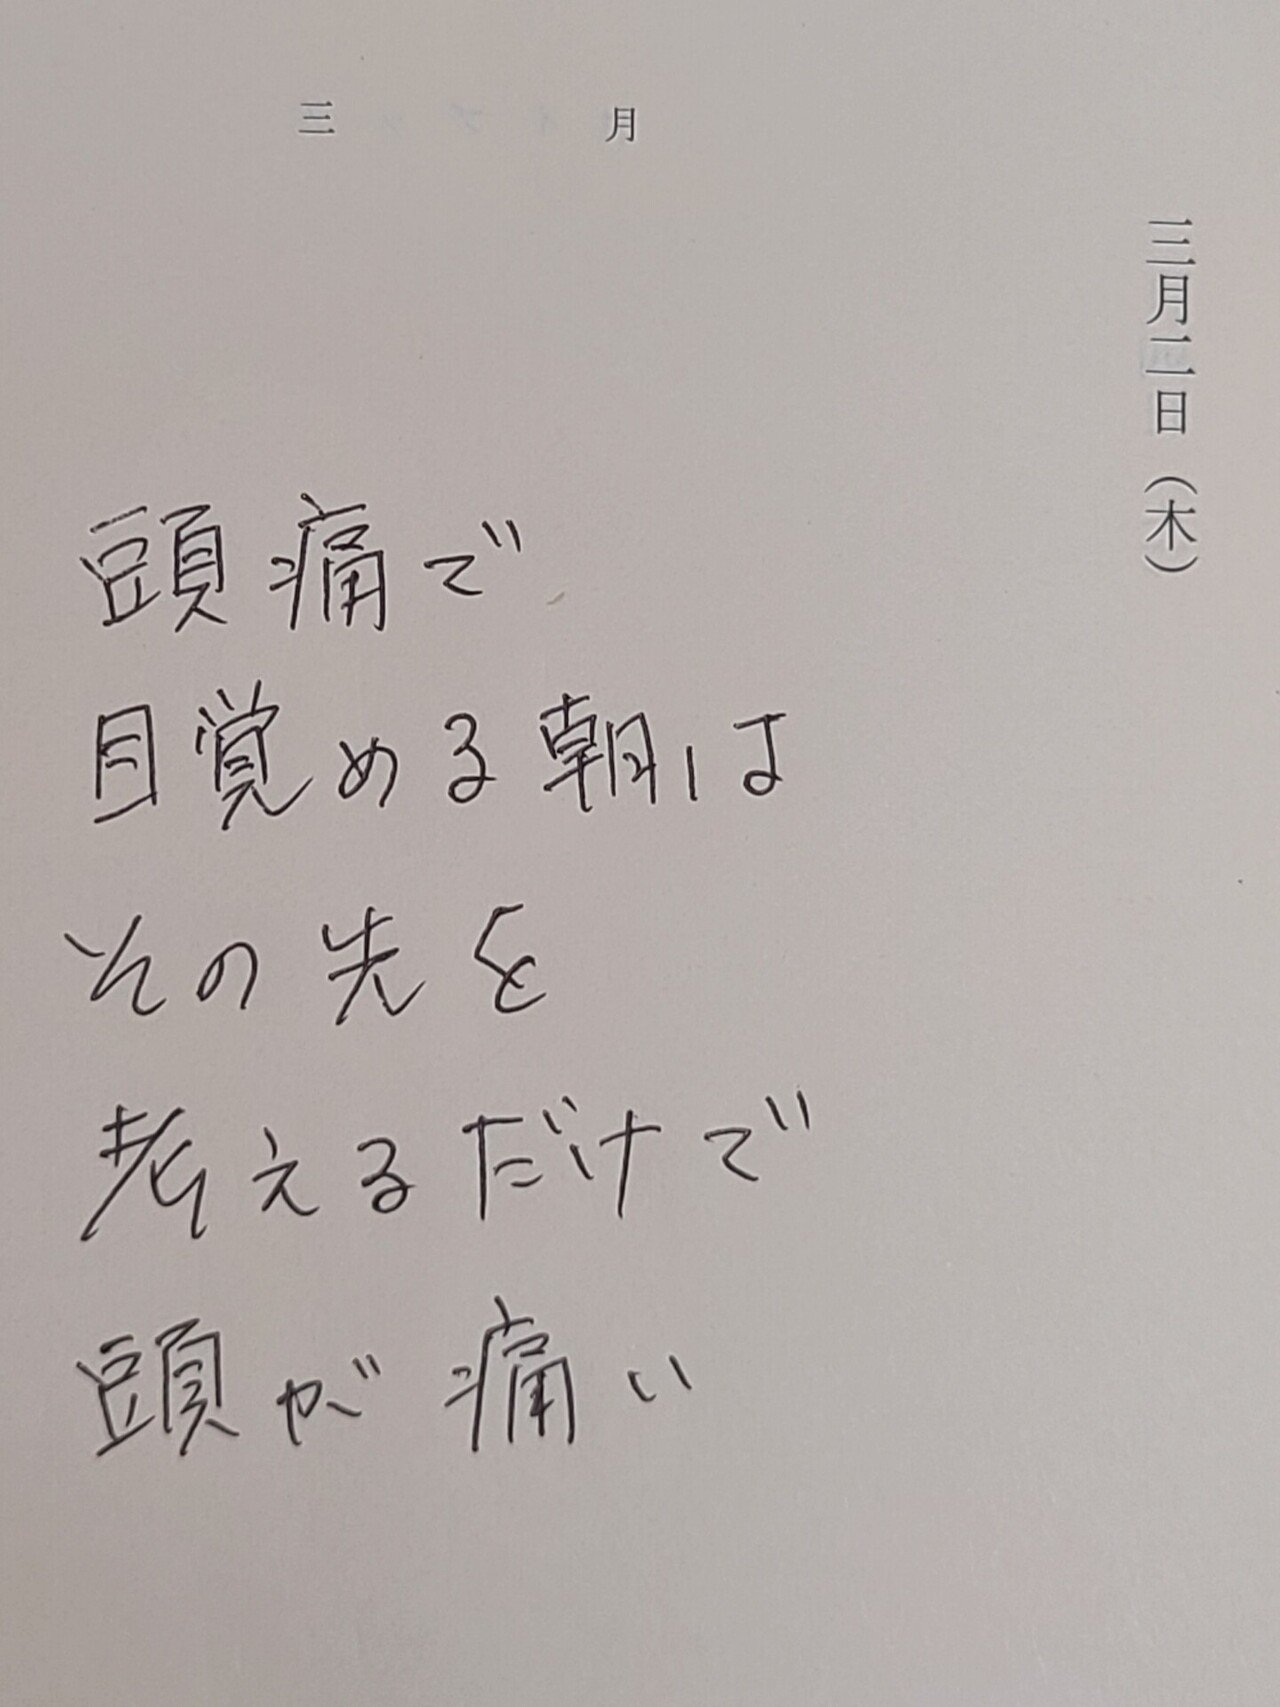 三月
三月二日（木）
頭痛で
目覚める朝は
その先を
考えるだけで
頭が痛い